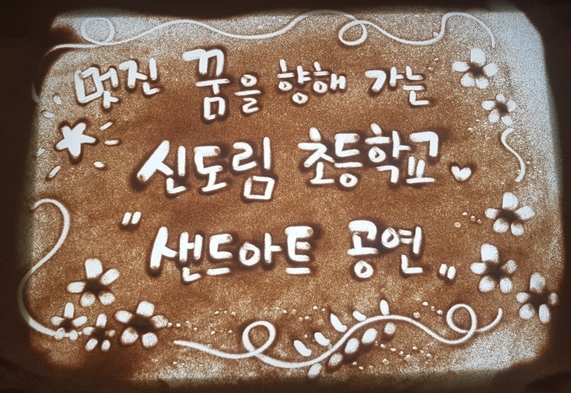 멋진 꿈을 향해 가는
신도림 초등학교♥
"샌드아트 공연"